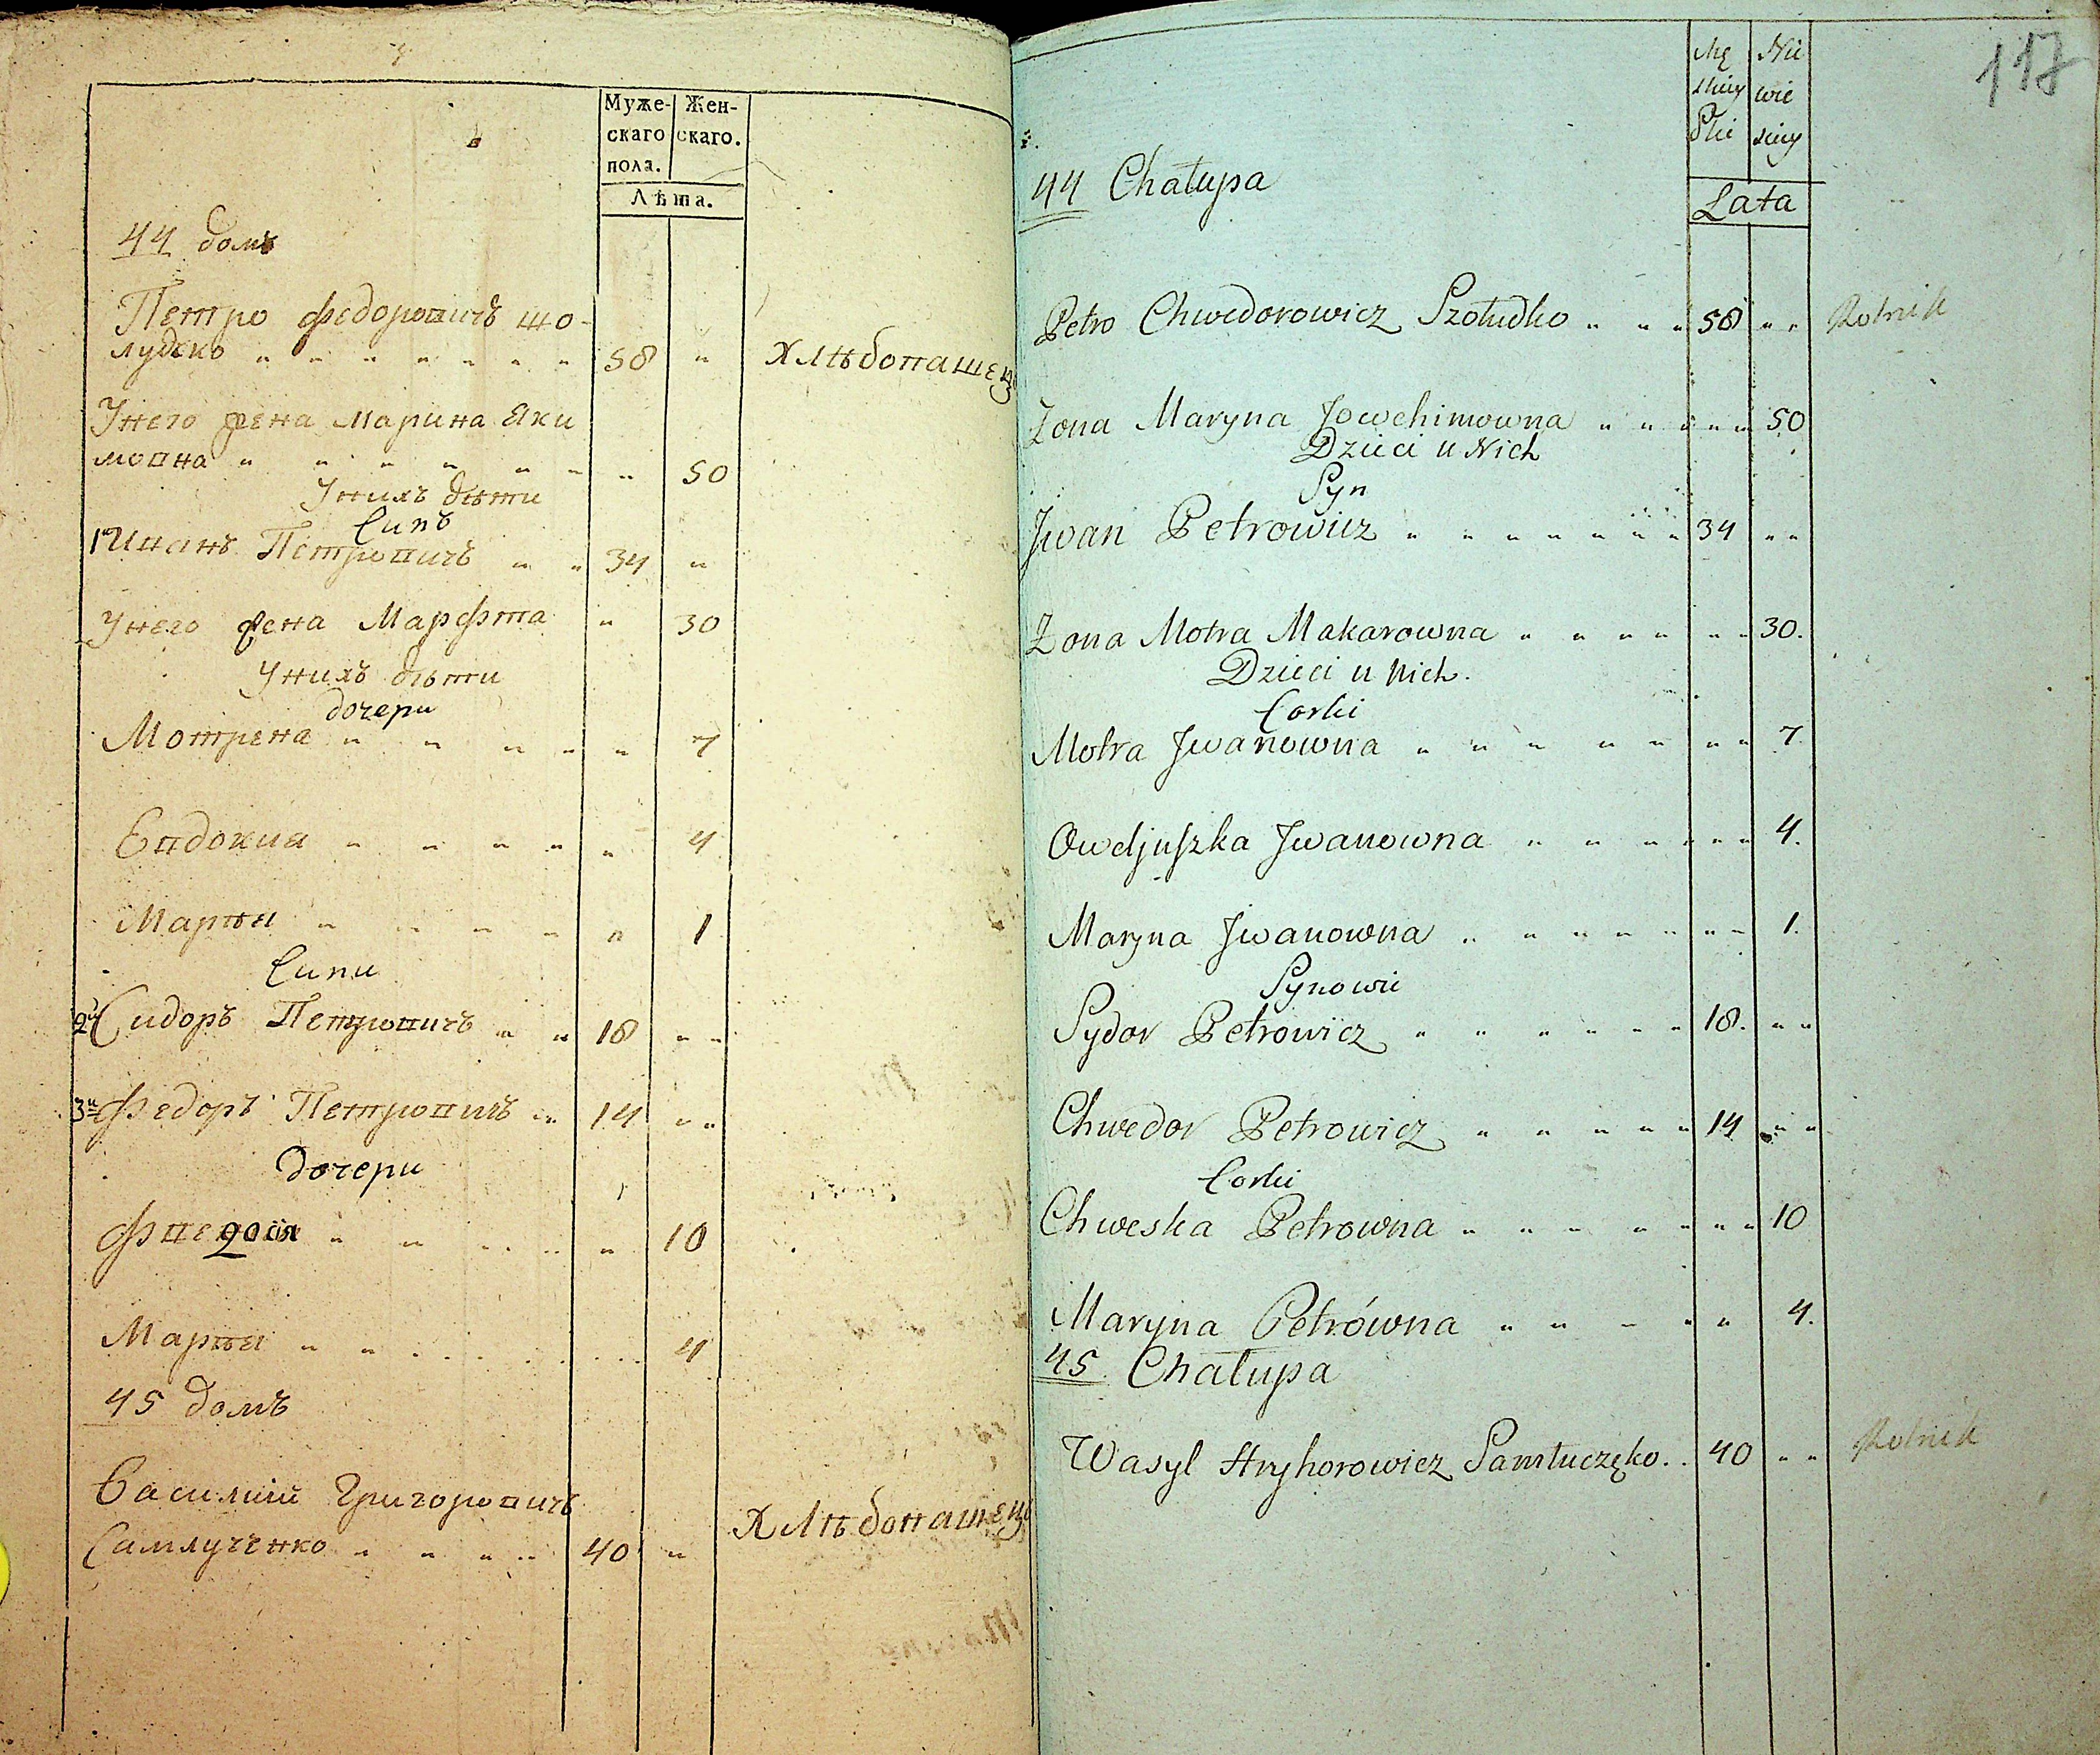 Муже-
скаго
пола.
Жен-
скаго.
Лѣта.
44 домъ
Петро Федоровичъ Шо-
лудко „ „ „ „ „ „ „ 58 „ Хлѣбопашецъ
Унего жена Марина Яки
мовна „ „ „ „ „ „ „ 50
Унихъ дѣти
Синъ
1й Иванъ Петровичъ „ „ 34 „
Унего жена Марфта „ 30
Унихъ дѣти
дочери
Мотрена „ „ „ „ „ 7
Евдокиа „ „ „ „ „ 4
Маръя „ „ „ „ „ 1
Сини
2й Сидоръ Петровичъ „ „ 18 „ „
3й Федоръ Петровичъ „ 14 „ „
Дочери
Фведося „ „ „ „ „ 10
Маръя „ „ 4
45 домъ
Василий Григоровичъ
Самлученко „ „ „ „ 40 „ Хлѣбопашецъ
117
Mę
skiey
Płci
Nie
wie
sciey
Lata
44 Chałupa
Petro Chwedorowicz Szołudko „ „ „ 58 „ „ Rolnik
Żona Maryna Jowchimowna „ „ „ „ „ 50
Dzieci u Nich
Syn
Jwan Petrowicz „ „ „ „ „ „ „ 34 „ „
Żona Motra Makarowna „ „ „ „ „ „ 30.
Dzieci u Nich.
Corki
Motra Jwanowna „ „ „ „ „ „ „ 7.
Owdjuszka Jwanowna „ „ „ „ „ „ 4.
Maryna Jwanowna „ „ „ „ „ „ „ 1.
Synowie
Sydor Petrowicz „ „ „ „ „ „ 18. „ „
Chwedor Petrowicz „ „ „ „ „ 14 „ „
Corki
Chweska Petrowna „ „ „ „ „ „ „ 10
Maryna Petrówna „ „ „ „ „ 4.
45 Chałupa
Wasyl Hryhorowicz Samłuczęko. . 40 „ „ Rolnik